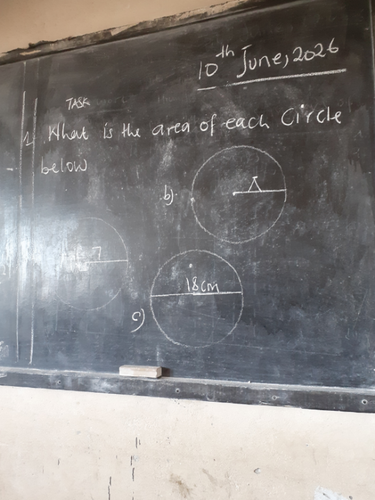 10th June, 2026
TASK
1. What is the area of each Circle
below
b)
7
c)
18cm